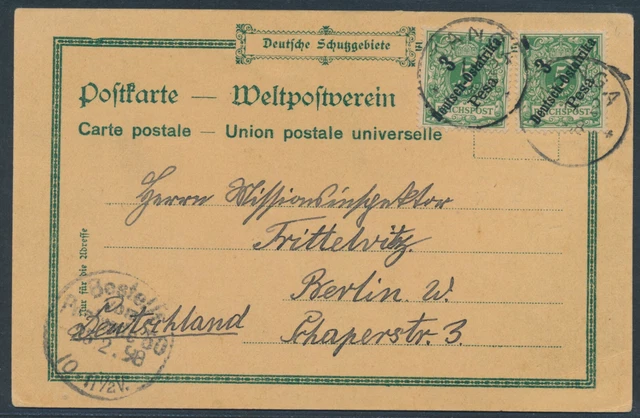 Deutsche Schutzgebiete
Postkarte — Weltpostverein
Carte postale — Union postale universelle
3
Pesa
Deutsch-Ostafrika
REICHSPOST
3
Pesa
Deutsch-Ostafrika
REICHSPOST
TANGA
Herrn Missionsinspektor
Trittelvitz
Berlin W.
Schaperstr. 3
Deutschland
Nur für die Adresse
Bestellt
2. 98